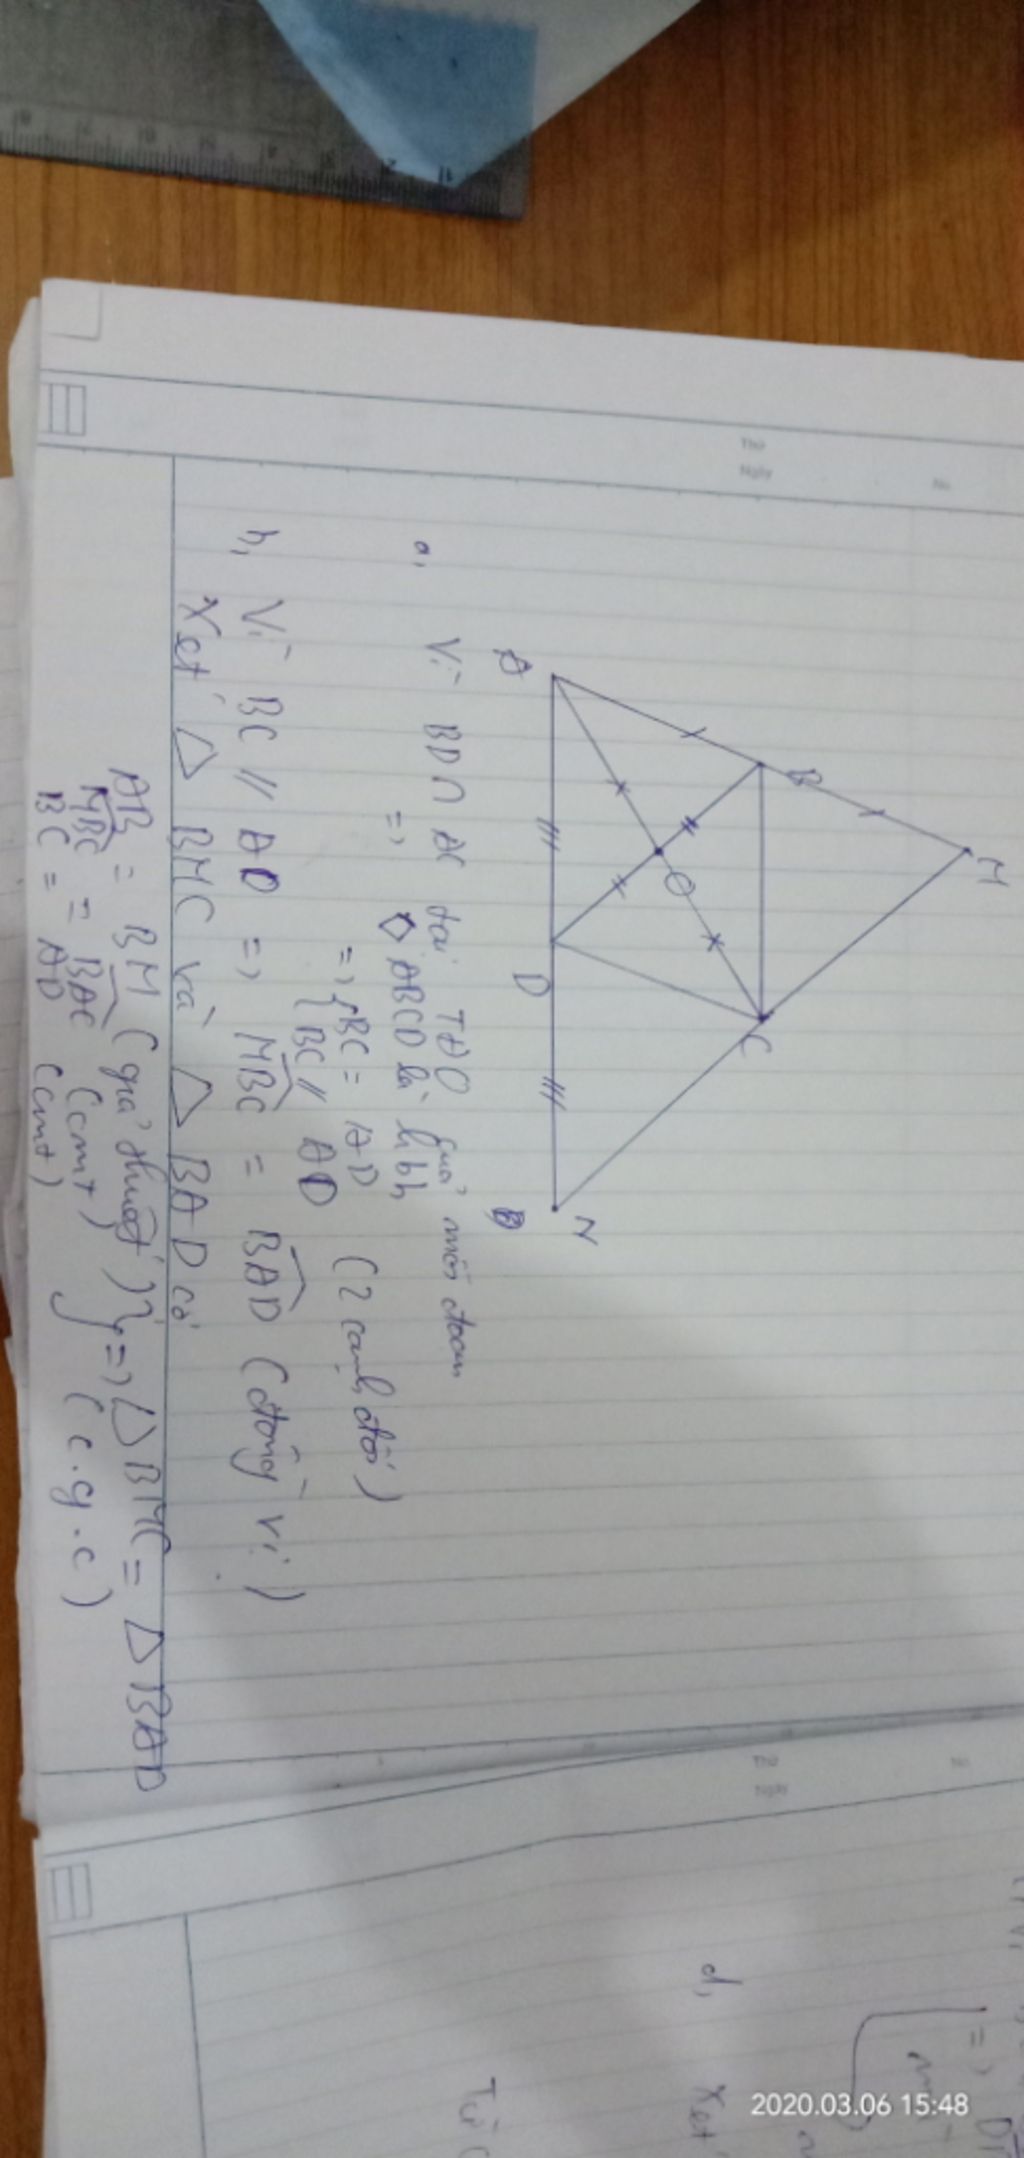 M
B
C
O
A
D
N
a, Vì BD ∩ AC tại TĐ O của mỗi đoạn
=> ◇ ABCD là hbh
=> { BC = AD (2 cạnh đối)
BC // AD
b, Vì BC // AD => MBC = BAD (đồng vị)
Xét △ BMC và △ BAD có
AB = BM (giả thuết) } => △ BMC = △ BAD
MBC = BAC (cmt) (c.g.c)
BC = AD (cmt)
Thứ
Ngày
No
Thứ
Ngày
No
d, Xét
Từ
2020.03.06 15:48